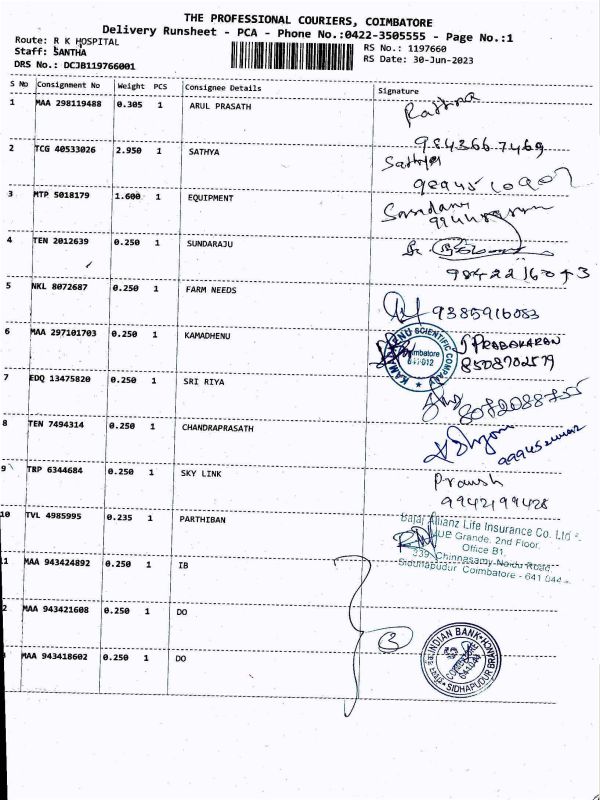 THE PROFESSIONAL COURIERS, COIMBATORE
Delivery Runsheet - PCA - Phone No.:0422-3505555 - Page No.:1
Route: R K HOSPITAL
Staff: SANTHA
DRS No.: DCJB119766001
RS No.: 1197660
RS Date: 30-Jun-2023
S No Consignment No Weight PCS Consignee Details Signature
1 MAA 298119488 0.305 1 ARUL PRASATH
9843667469
2 TCG 40533026 2.950 1 SATHYA Sathya
3 MTP 5018179 1.600 1 EQUIPMENT
4 TEN 2012639 0.250 1 SUNDARAJU
9842216043
5 NKL 8072687 0.250 1 FARM NEEDS 9385916083
6 MAA 297101703 0.250 1 KAMADHENU J PRABAKARAN
8508702579
KAMADHENU SCIENTIFIC COMPANY
Coimbatore
641 012
7 EDQ 13475820 0.250 1 SRI RIYA 8072088755
8 TEN 7494314 0.250 1 CHANDRAPRASATH
9 TRP 6344684 0.250 1 SKY LINK
9942199428
10 TVL 4985995 0.235 1 PARTHIBAN
Bajaj Allianz Life Insurance Co. Ltd
Grande, 2nd Floor,
Office B1,
339, Chinnasamy Naidu Road,
Sidhapudur Coimbatore - 641 044
11 MAA 943424892 0.250 1 IB
2 MAA 943421608 0.250 1 DO
3
MAA 943418602 0.250 1 DO
INDIAN BANK
COIMBATORE
SIDHAPUDUR BRANCH